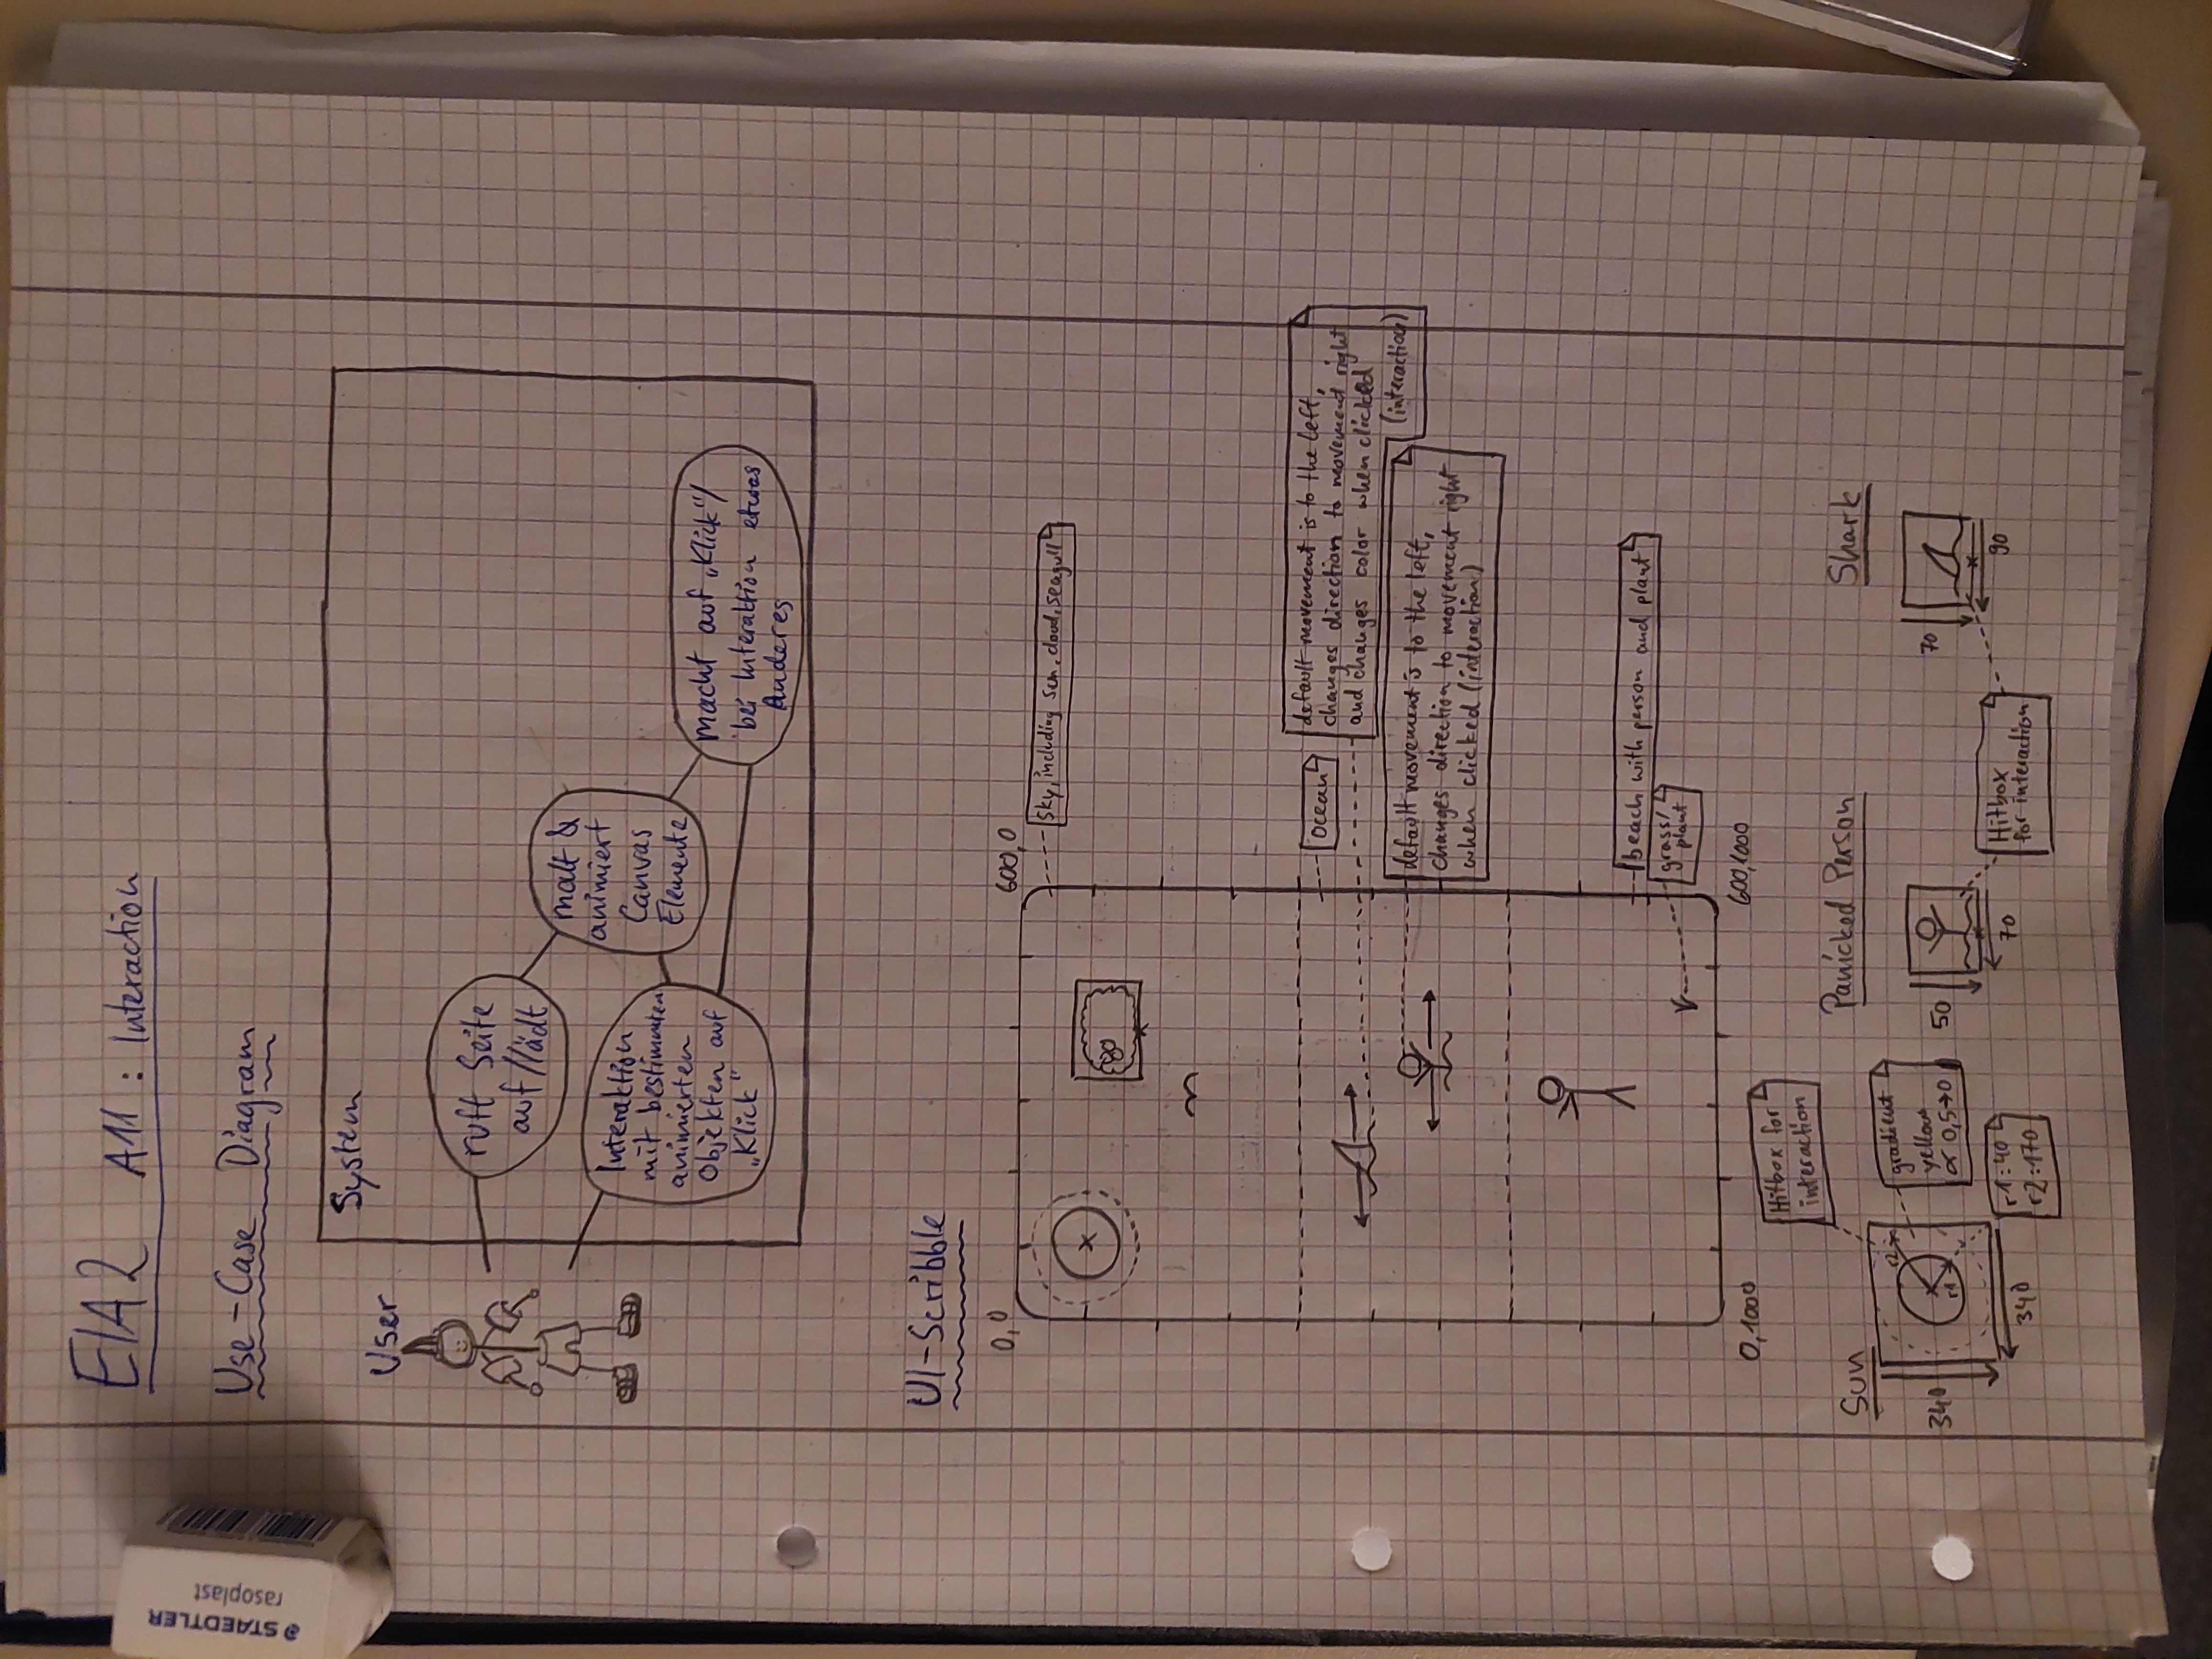 STAEDTLER
rasoplast
EIA2 A11 : Interaction
Use-Case Diagram
System
User
ruft Seite
auf/lädt
malt &
animiert
Canvas
Elemente
Interaktion
mit bestimmten
animierten
Objekten auf
„Klick“
macht auf „Klick“/
bei Interaktion etwas
Anderes
UI-Scribble
0,0
600,0
Sky, including sun, cloud, seagull
ocean
default movement is to the left,
changes direction to movement right
and changes color when clicked
(interaction)
default movement is to the left,
changes direction to movement right
when clicked (interaction)
beach with person and plant
grass/
plant
0,1000
600,1000
Hitbox for
interaction
Sun
340
r2
r1
340
gradient
yellow
α 0,5→0
r1:40
r2:170
Panicked Person
50
70
Hitbox
for interaction
Shark
70
90